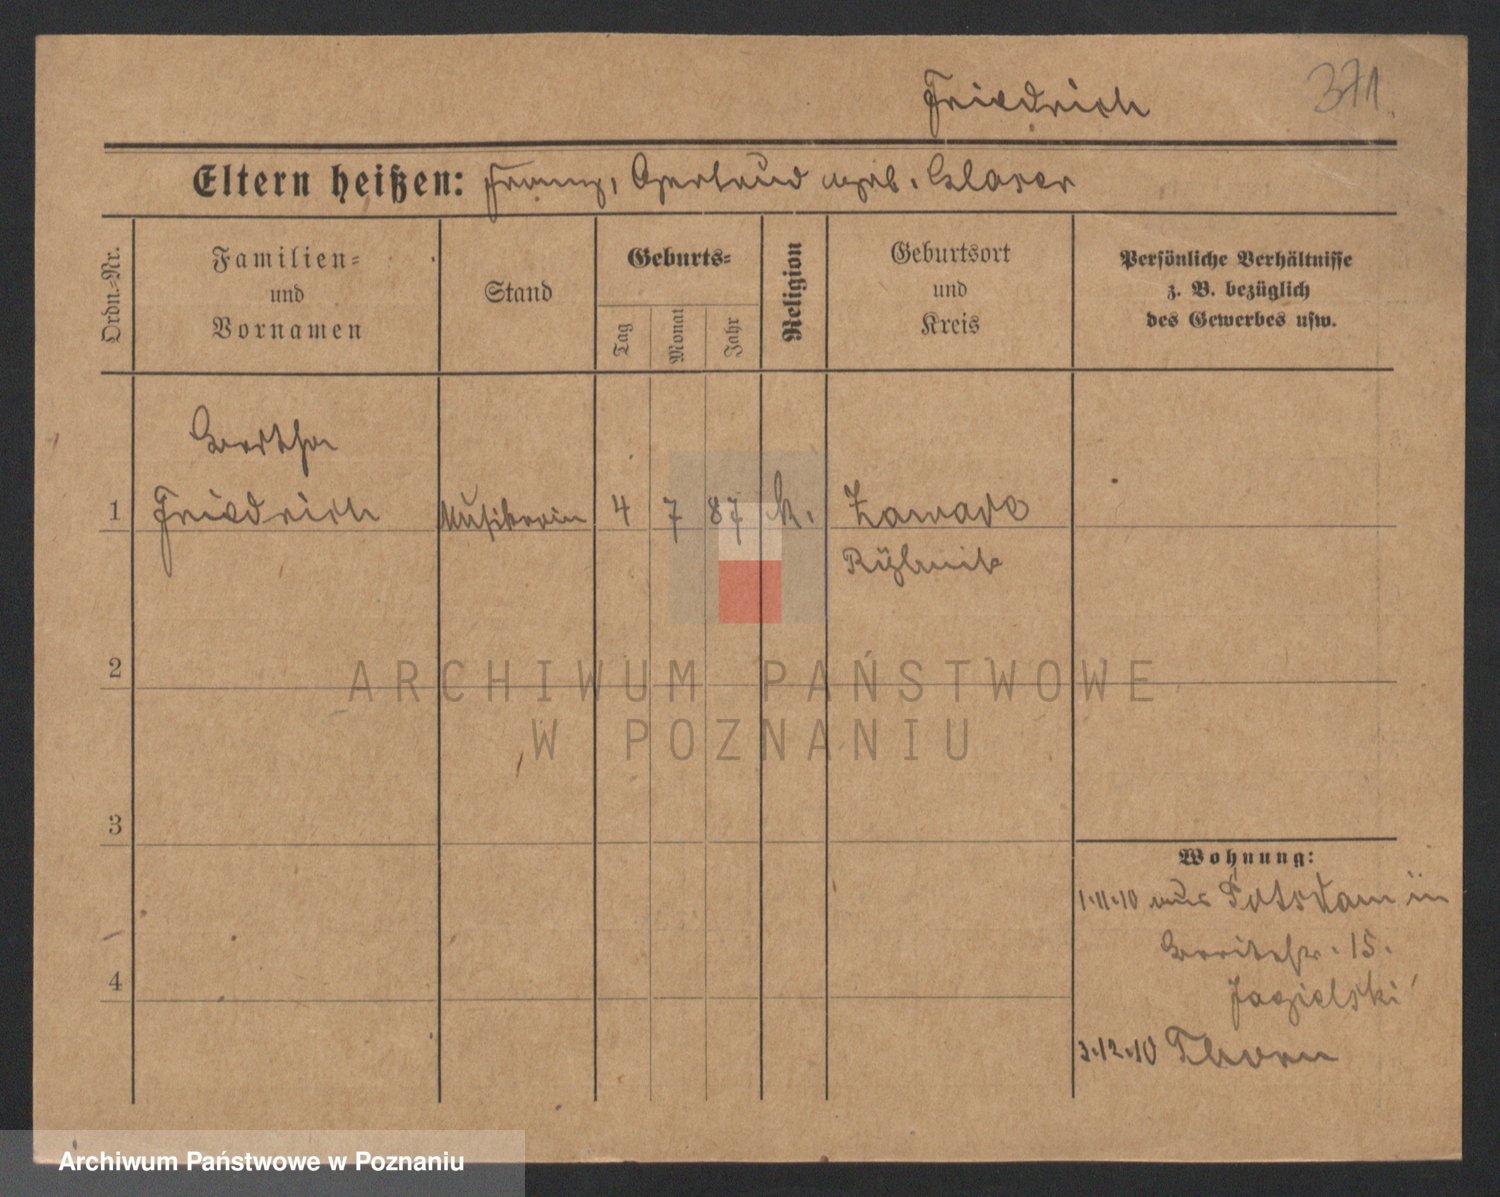 Friedrich
371
Eltern heißen: Franz, Gertrud geb. Klaser
Ordn.-Nr.
Familien-
und
Vornamen
Stand
Geburts-
Tag
Monat
Jahr
Religion
Geburtsort
und
Kreis
Persönliche Verhältnisse
z. B. bezüglich
des Gewerbes usw.
Bertha
1 Friedrich Musikerin 4 7 87 k. Zawada
Rybnik
2
3
4
Wohnung:
1.11.10 aus Potsdam in
Breitestr. 15.
Jagielski
3.12.10 Thorn
ARCHIWUM PAŃSTWOWE
W POZNANIU
Archiwum Państwowe w Poznaniu